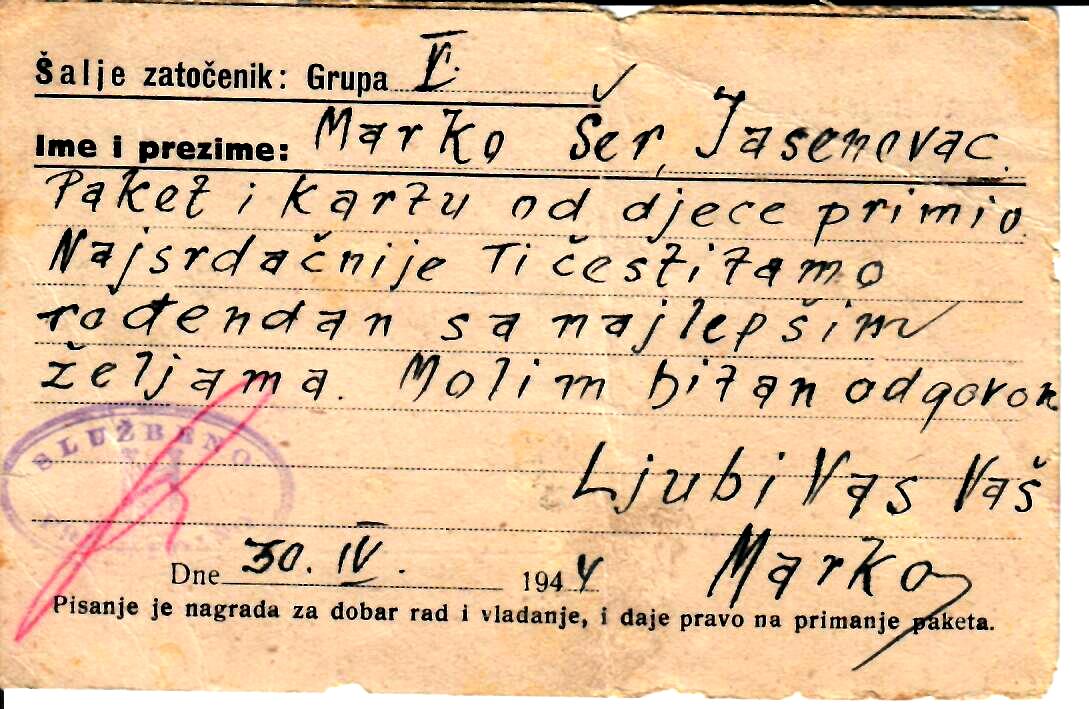 Šalje zatočenik: Grupa V.
Ime i prezime: Marko Ser, Jasenovac.
Paket i kartu od djece primio.
Najsrdačnije Ti čestitamo
rođendan sa najlepšim
željama. Molim hitan odgovor
Ljubi Vas Vaš
Marko
SLUŽBENO
Dne 30. IV. 1944
Pisanje je nagrada za dobar rad i vladanje, i daje pravo na primanje paketa.